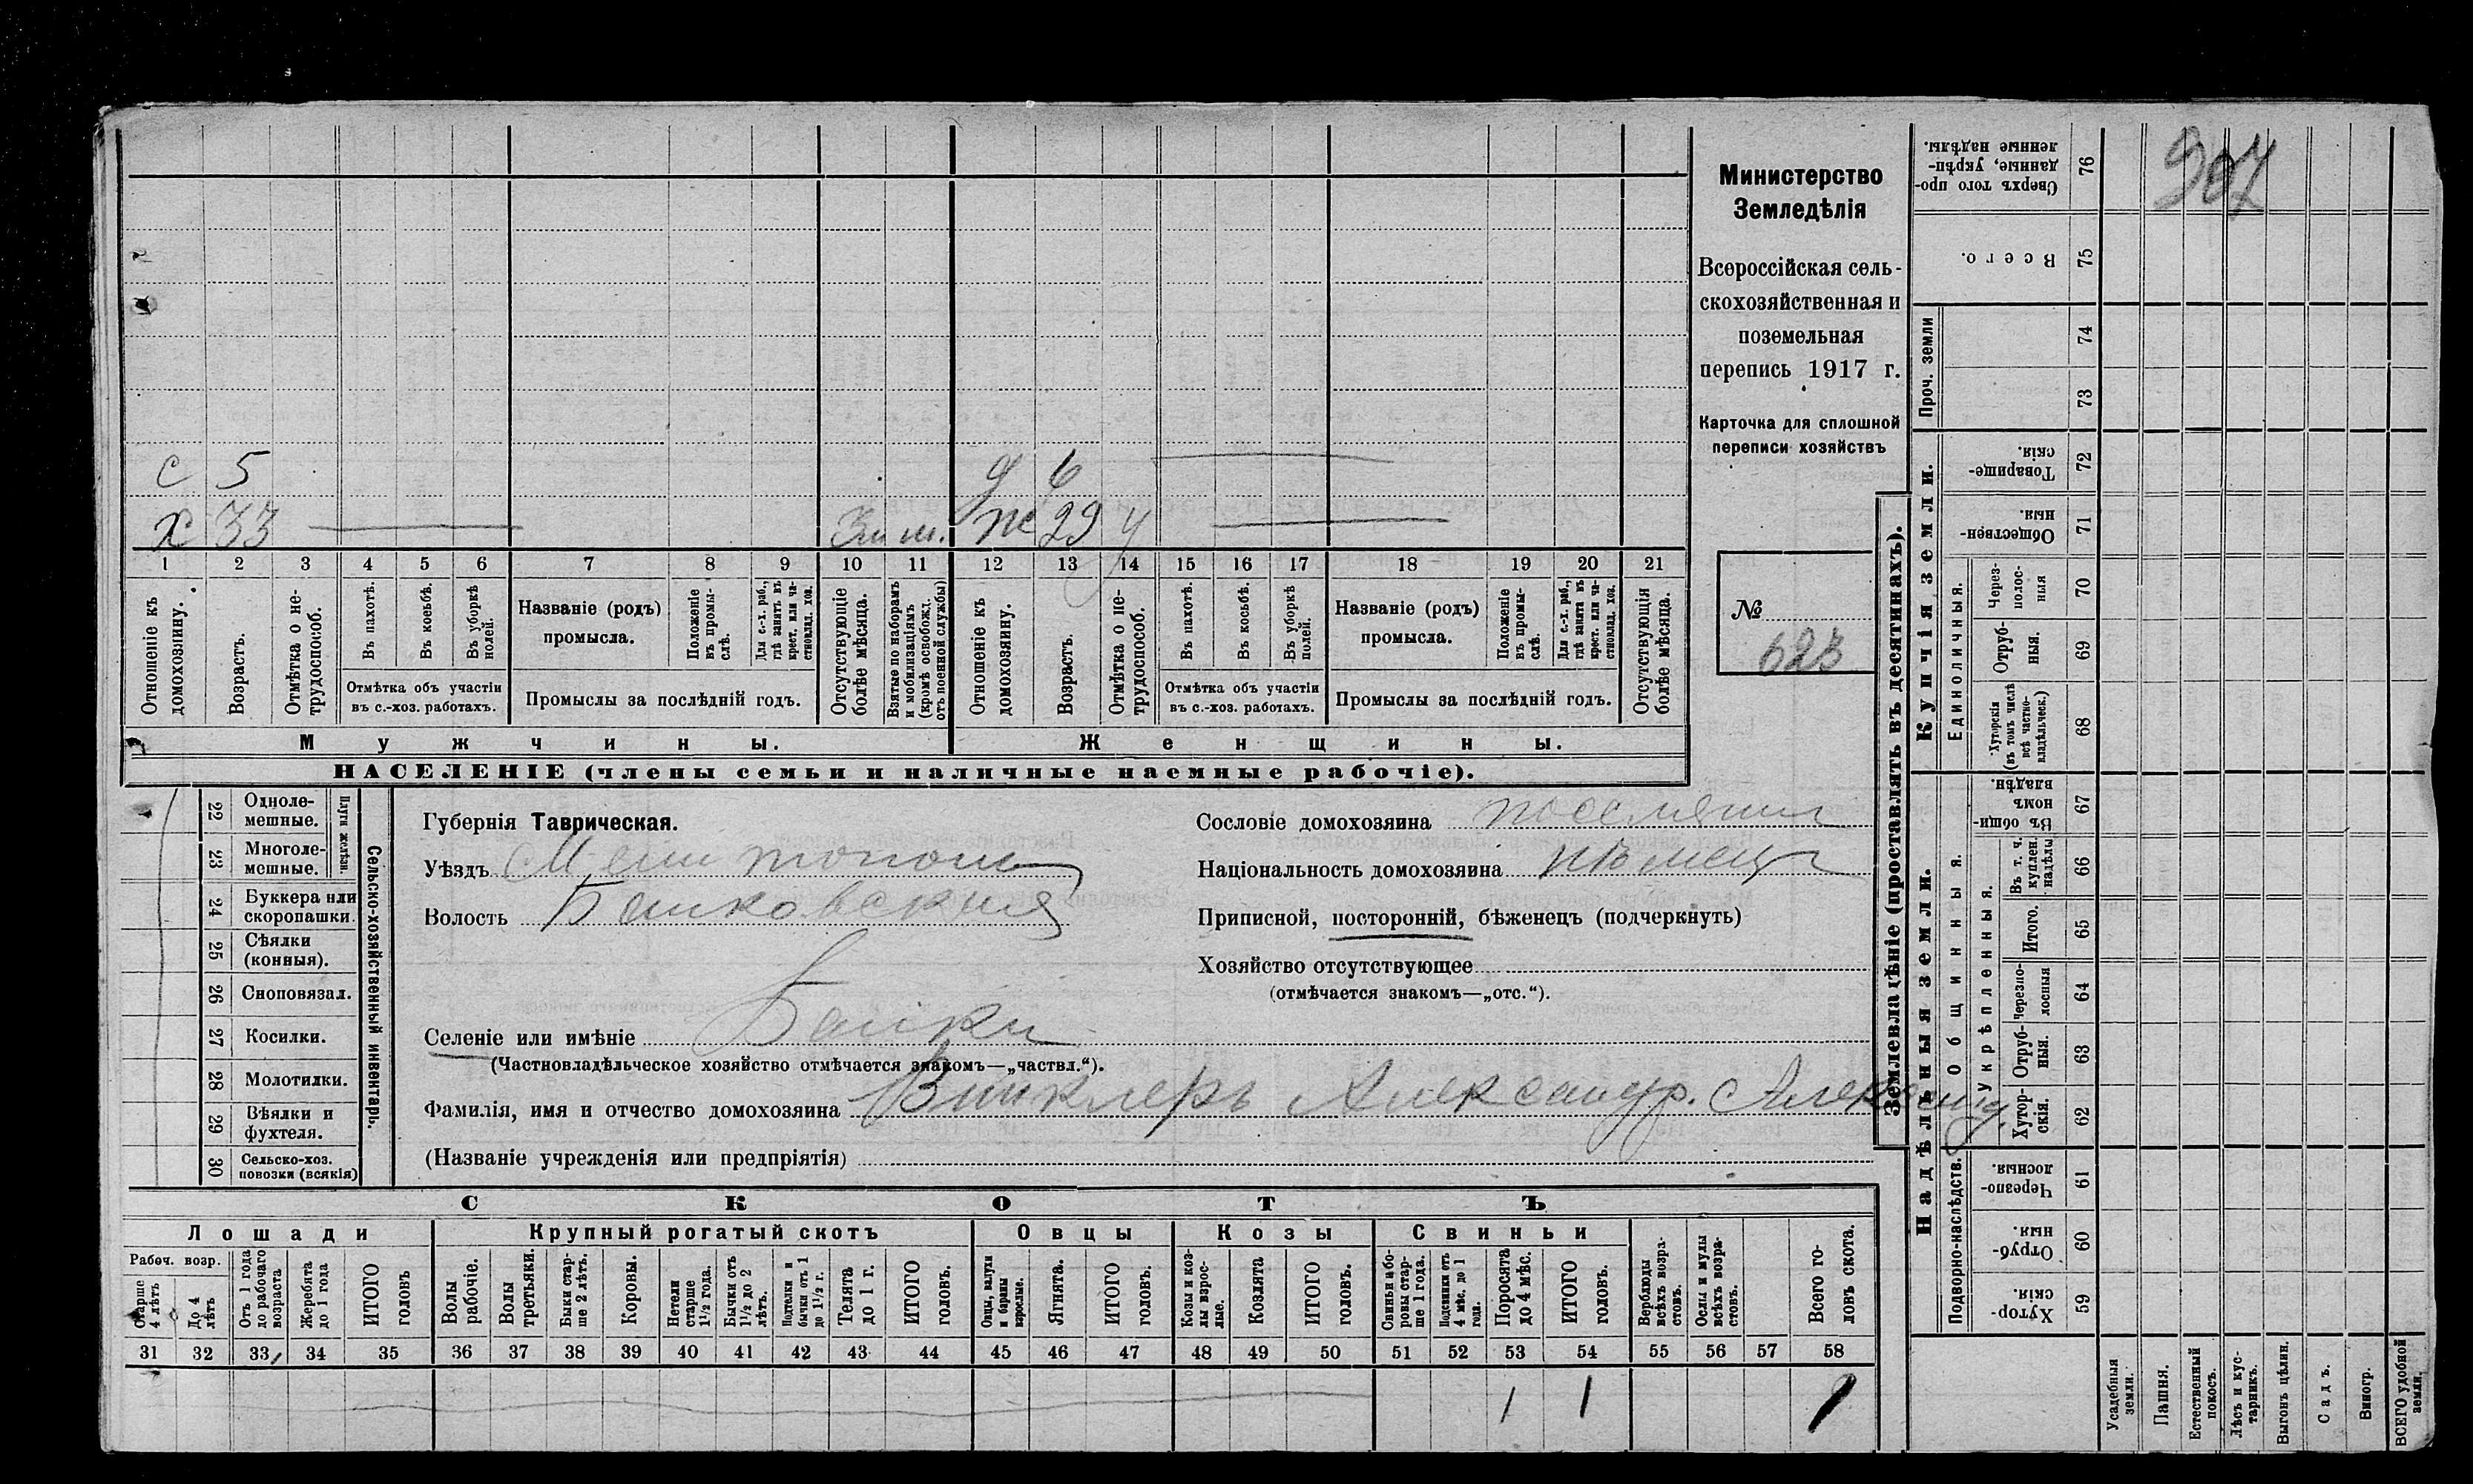 907
Министерство
Земледѣлія
Всероссійская сель-
скохозяйственная и
поземельная
перепись 1917 г.
Карточка для сплошной
переписи хозяйствъ
№
623
с 5
д 6
х 33
3 м. 29
1 2 3 4 5 6 7 8 9 10 11 12 13 14 15 16 17 18 19 20 21
Отношеніе къ домохозяину.
Возрастъ.
Отмѣтка о не-трудоспособ.
Въ пахотѣ.
Въ косьбѣ.
Въ уборкѣ полей.
Отмѣтка объ участіи
въ с.-хоз. работахъ.
Названіе (родъ)
промысла.
Положеніе въ промы-слѣ.
Для с.-х. раб., гдѣ занятъ въ крест. или ча-стновлад. хоз.
Промыслы за послѣдній годъ.
Отсутствующіе болѣе мѣсяца.
Взятые по наборамъ и мобилизаціямъ (кромѣ освобожд. отъ военной службы)
Отношеніе къ домохозяину.
Возрастъ.
Отмѣтка о не-трудоспособ.
Въ пахотѣ.
Въ косьбѣ.
Въ уборкѣ полей.
Отмѣтка объ участіи
въ с.-хоз. работахъ.
Названіе (родъ)
промысла.
Положеніе въ промы-слѣ.
Для с.-х. раб., гдѣ занята въ крест. или ча-стновлад. хоз.
Промыслы за послѣдній годъ.
Отсутствующія болѣе мѣсяца.
Мужчины.
Женщины.
НАСЕЛЕНІЕ (члены семьи и наличные наемные рабочіе).
Сельско-хозяйственный инвентарь.
Плуги желѣзн.
22 Одноле-мешные.
23 Многоле-мешные.
24 Буккера или скоропашки.
25 Сѣялки (конныя).
26 Сноповязал.
27 Косилки.
28 Молотилки.
29 Вѣялки и фухтеля.
30 Сельско-хоз. повозки (всякія)
Губернія Таврическая.
Уѣздъ Мелитополь
Волость Бальковская
Селеніе или имѣніе Бальки
(Частновладѣльческое хозяйство отмѣчается знакомъ—„частвл.“).
Фамилія, имя и отчество домохозяина Винклеръ Александр. Александ.
(Названіе учрежденія или предпріятія)
Сословіе домохозяина поселянин
Національность домохозяина нѣмец
Приписной, посторонній, бѣженецъ (подчеркнуть)
Хозяйство отсутствующее
(отмѣчается знакомъ—„отс.“).
СКОТЪ
Лошади
Крупный рогатый скотъ
Овцы
Козы
Свиньи
Рабоч. возр.
Старше 4 лѣтъ
До 4 лѣтъ
Отъ 1 года до рабочаго возраста
Жеребята до 1 года
ИТОГО головъ
Волы рабочіе.
Волы третьяки.
Быки стар-ше 2 лѣтъ.
Коровы.
Нетели старше 1½ года.
Бычки отъ 1½ до 2 лѣтъ.
Подтелки и бычки отъ 1 до 1½ г.
Телята до 1 г.
ИТОГО головъ.
Овцы, валухи и бараны взрослые.
Ягнята.
ИТОГО головъ.
Козы и коз-лы взрос-лые.
Козлята
ИТОГО головъ.
Свиньи и бо-ровы стар-ше 1 года.
Подсвинки отъ 4 мѣс. до 1 года.
Поросята до 4 мѣс.
ИТОГО головъ.
Верблюды всѣхъ возра-стовъ.
Ослы и мулы всѣхъ возра-стовъ.
Всего го-ловъ скота.
31 32 33 34 35 36 37 38 39 40 41 42 43 44 45 46 47 48 49 50 51 52 53 54 55 56 57 58
1 1 1
Землевладѣніе (проставлять въ десятинахъ).
Купчія земли.
Надѣльныя земли.
Проч. земли
Единоличныя.
Общинныя.
Укрѣпленныя.
Подворно-наслѣдств.
Сверхъ того про-данные, укрѣп-ленные надѣлы. 76
Всего. 75
74
73
Товарище-скія. 72
Обществен-ныя. 71
Через-полос-ныя 70
Отруб-ныя. 69
Хуторскія (въ томъ числѣ всѣ частно-владѣльческ.) 68
Въ общин-номъ владѣн. 67
Въ т. ч. куплен. надѣлы 66
Итого. 65
Черезпо-лосныя 64
Отруб-ныя. 63
Хутор-скія. 62
Черезпо-лосныя. 61
Отруб-ныя. 60
Хутор-скія. 59
Усадебныя земли.
Пашня.
Естественный покосъ.
Лѣсъ и кус-тарникъ.
Выгонъ цѣлин.
Садъ.
Виногр.
ВСЕГО удобной земли.